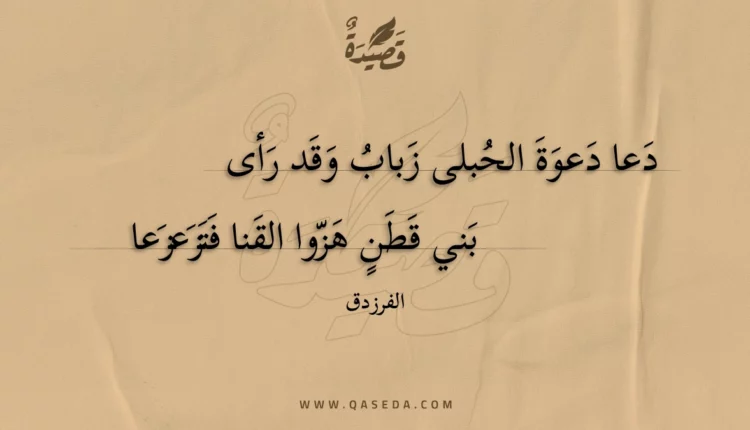 قَصِيْدَةٌ
دَعا دَعوَةَ الحُبلى زَبابُ وَقَد رَأى
بَني قَطَنٍ هَزّوا القَنا فَتَزَعزَعا
الفرزدق
WWW.QASEDA.COM